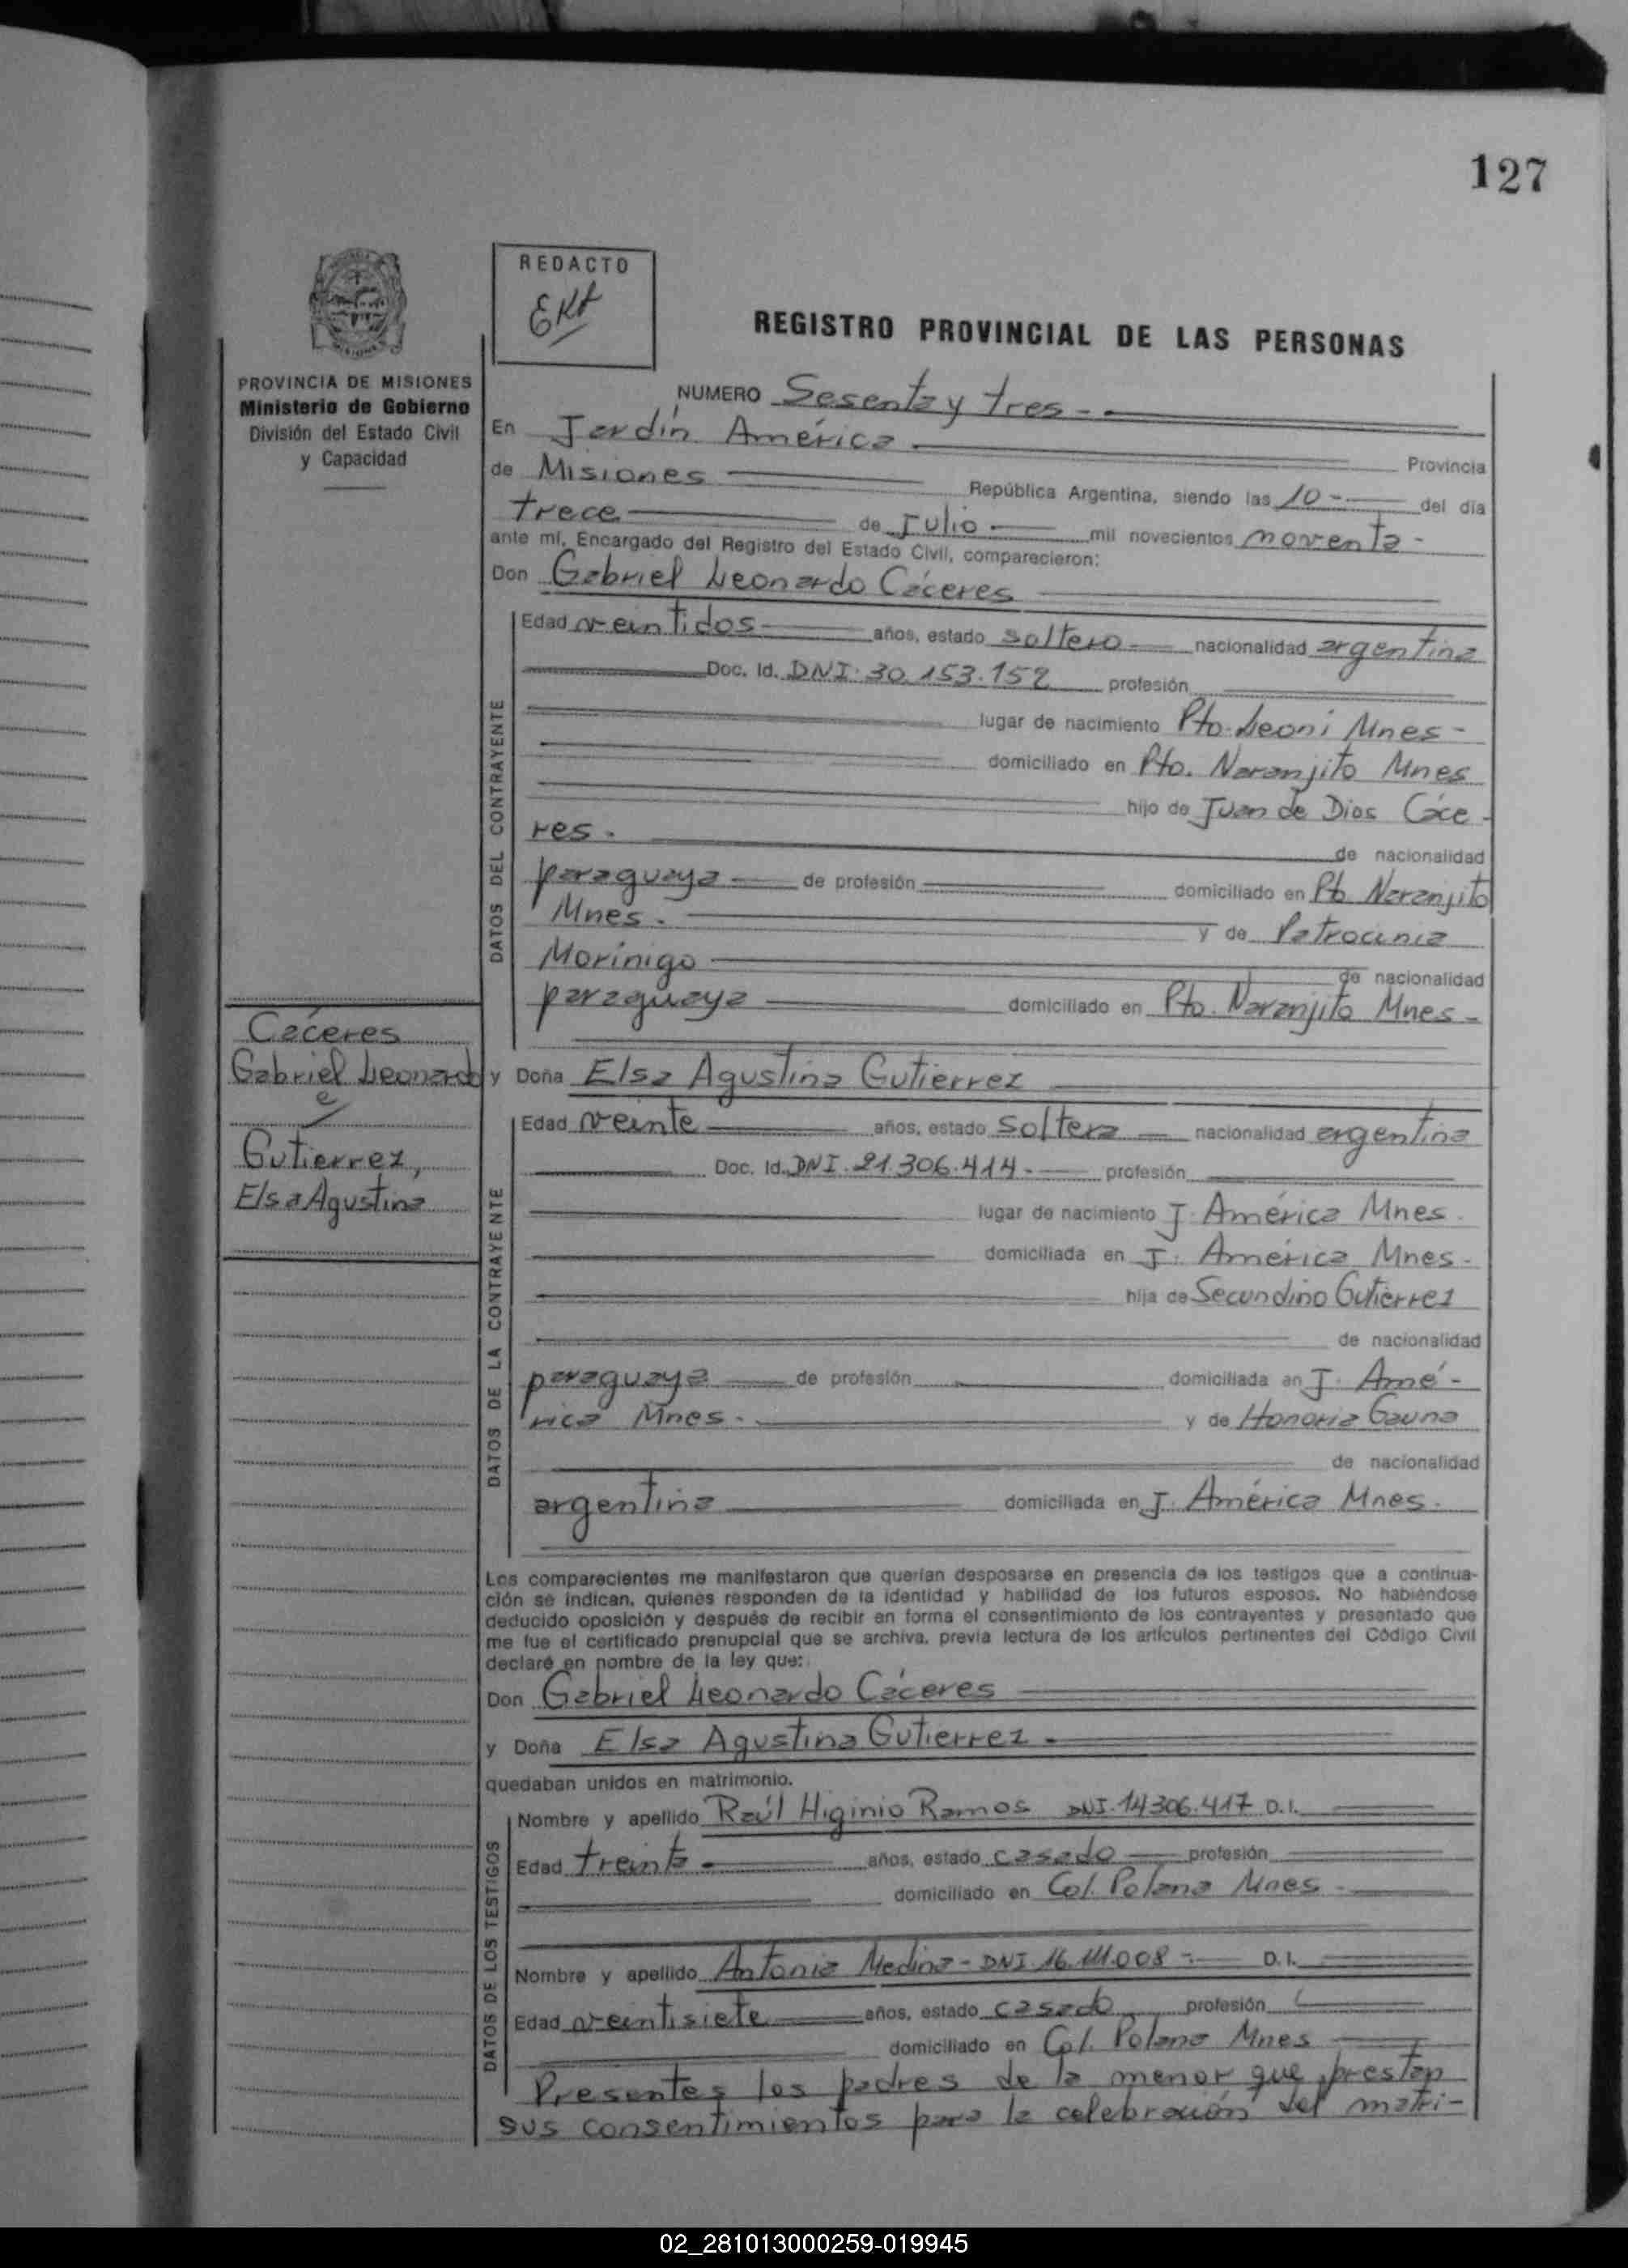 127
REDACTO
REGISTRO PROVINCIAL DE LAS PERSONAS
PROVINCIA DE MISIONES
Ministerio de Gobierno
División del Estado Civil
y Capacidad
NUMERO Sesenta y tres -
En Jardín América
Provincia
de Misiones República Argentina, siendo las 10 - del día
trece de Julio mil novecientos noventa -
ante mí, Encargado del Registro del Estado Civil, comparecieron:
Don Gabriel Leonardo Cáceres
DATOS DEL CONTRAYENTE
Edad veintidos años, estado soltero nacionalidad argentina
Doc. Id. DNI. 30.153.152 profesión
lugar de nacimiento Pto. Leoni Mnes -
domiciliado en Pto. Naranjito Mnes
hijo de Juan de Dios Cáce-
res.
de nacionalidad
paraguaya de profesión domiciliado en Pto Naranjito
Mnes. y de Patrocinia
Morínigo de nacionalidad
paraguaya domiciliado en Pto. Naranjito Mnes -
Cáceres
Gabriel Leonardo
e
Gutierrez,
Elsa Agustina
y Doña Elsa Agustina Gutierrez
DATOS DE LA CONTRAYENTE
Edad veinte años, estado soltera nacionalidad argentina
Doc. Id. DNI. 21.306.414. profesión
lugar de nacimiento J. América Mnes.
domiciliada en J. América Mnes.
hija de Secundino Gutierrez
de nacionalidad
paraguaya de profesión domiciliada en J. Amé-
rica Mnes. y de Honoria Gauna
de nacionalidad
argentina domiciliada en J. América Mnes.
Los comparecientes me manifestaron que querían desposarse en presencia de los testigos que a continua-
ción se indican, quienes responden de la identidad y habilidad de los futuros esposos. No habiéndose
deducido oposición y después de recibir en forma el consentimiento de los contrayentes y presentado que
me fue el certificado prenupcial que se archiva, previa lectura de los artículos pertinentes del Código Civil
declaré en nombre de la ley que:
Don Gabriel Leonardo Cáceres
y Doña Elsa Agustina Gutierrez -
quedaban unidos en matrimonio.
DATOS DE LOS TESTIGOS
Nombre y apellido Raúl Higinio Ramos DNI. 14306.417 D.I.
Edad treinta años, estado casado profesión
domiciliado en Col. Polana Mnes -
Nombre y apellido Antonia Medina - DNI 16.111.008 - D.I.
Edad veintisiete años, estado casado profesión
domiciliado en Col. Polana Mnes
Presentes los padres de la menor que prestan
sus consentimientos para la celebración del matri-
02_281013000259-019945